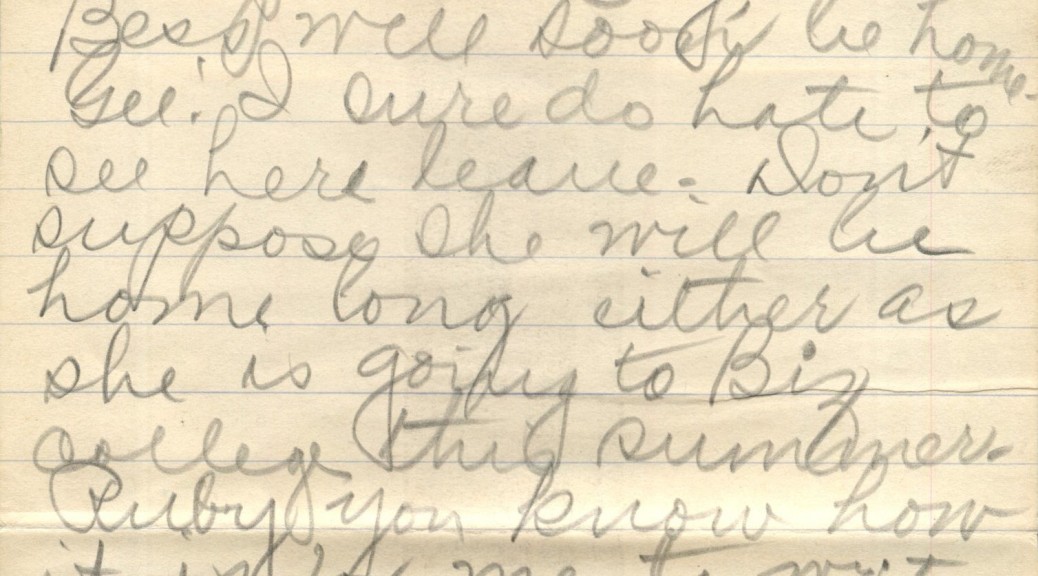 Bess will soon be home-
Gee! I sure do hate to
see here leave. Don't
suppose she will be
home long either as
she is going to Biz
college this summer.
Ruby you know how
it is me to writ